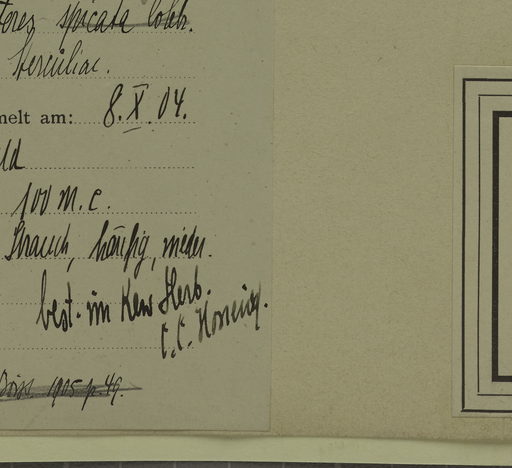 spicata Colebr.
Sterculiac.
melt am: 8. X. 04.
ld
100 m. c.
Strauch, häufig, nieder.
best. im Kew Herb.
C. C. Hosseus.
Boiss 1905 p. 49.